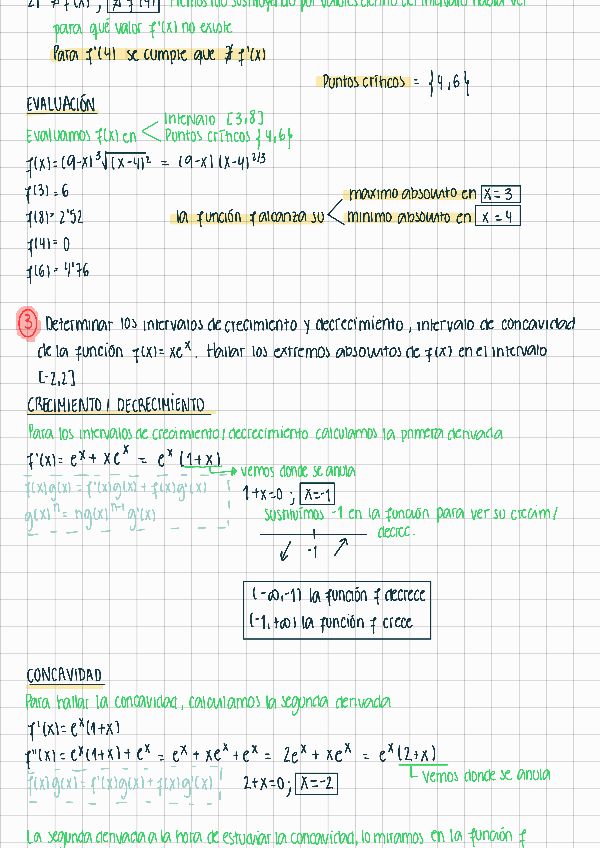 para qué valor f'(x) no existe
Para f'(4) se cumple que ∄ f'(x)
Puntos críticos = {4,6}
EVALUACIÓN
Evaluamos f(x) en < Intervalo [3,8]
Puntos críticos {4,6}
f(x)=(9-x)∛(x-4)² = (9-x)(x-4)^2/3
f(3)=6
f(8)=2'52
f(4)=0
f(6)=4'76
la función f alcanza su < maximo absouto en x=3
minimo absouto en x=4
3 Determinar los intervalos de crecimiento y decrecimiento, intervalo de concavidad
de la función f(x)=xe^x. Hallar los extremos absolutos de f(x) en el intervalo
[-2,2]
CRECIMIENTO / DECRECIMIENTO
Para los intervalos de crecimiento/decrecimiento calculamos la primera derivada
f'(x)= e^x + xe^x = e^x (1+x)
vemos donde se anula
f(x)g(x)=f'(x)g(x)+f(x)g'(x)
g(x)^n = ng(x)^n-1 g'(x)
1+x=0 ; x=-1
sustituimos -1 en la función para ver su crecim/
decrec.
-1
(-∞,-1) la función f decrece
(-1,+∞) la función f crece
CONCAVIDAD
Para hallar la concavidad, calculamos la segunda derivada
f'(x)=e^x(1+x)
f''(x)=e^x(1+x)+e^x = e^x + xe^x + e^x = 2e^x + xe^x = e^x(2+x)
vemos donde se anula
f(x)g(x)=f'(x)g(x)+f(x)g'(x)
2+x=0; x=-2
La segunda derivada a la hora de estudiar la concavidad, lo miramos en la función f